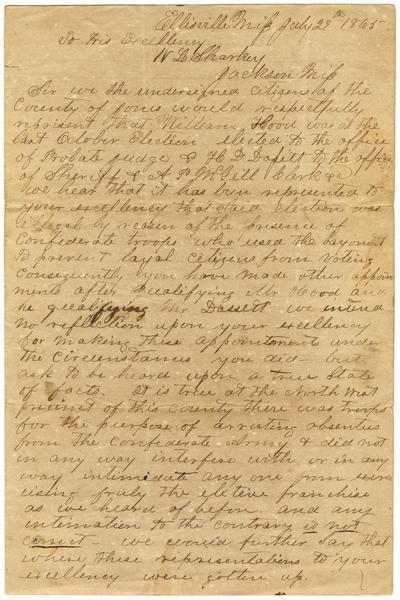 Ellisville Miss July 29th 1865
To His Excellency
W L Sharkey
Jackson Miss
Sir we the undersigned citizens of the
County of Jones would respectfully
represent that William Hood was at the
last October Election elected to the office
of Probate Judge & H D Dossett to the office
of Sheriff & A P McGill Clerk &c
we hear that it has been represented to
your excellency that said election was
illegal by reason of the presence of
Confederate troops who used the bayonet
to prevent loyal citizens from voting
Consequently you have made other appoint
ments after qualifying Mr Hood and
he qualifying Mr Dossett we intend
no reflection upon your excellency
for making these appointments under
the circumstances you did - but
ask to be heard upon a true State
of facts. It is true at the North West
precinct of this county there was troops
for the purpose of arresting absentees
from the Confederate Army & did not
in any way interfere with or in any
way intimidate any one from exer
cising freely the elective franchise
as we heard of before and any
intimation to the contrary is not
correct - we would further say that
where these representations to your
excellency were gotten up.